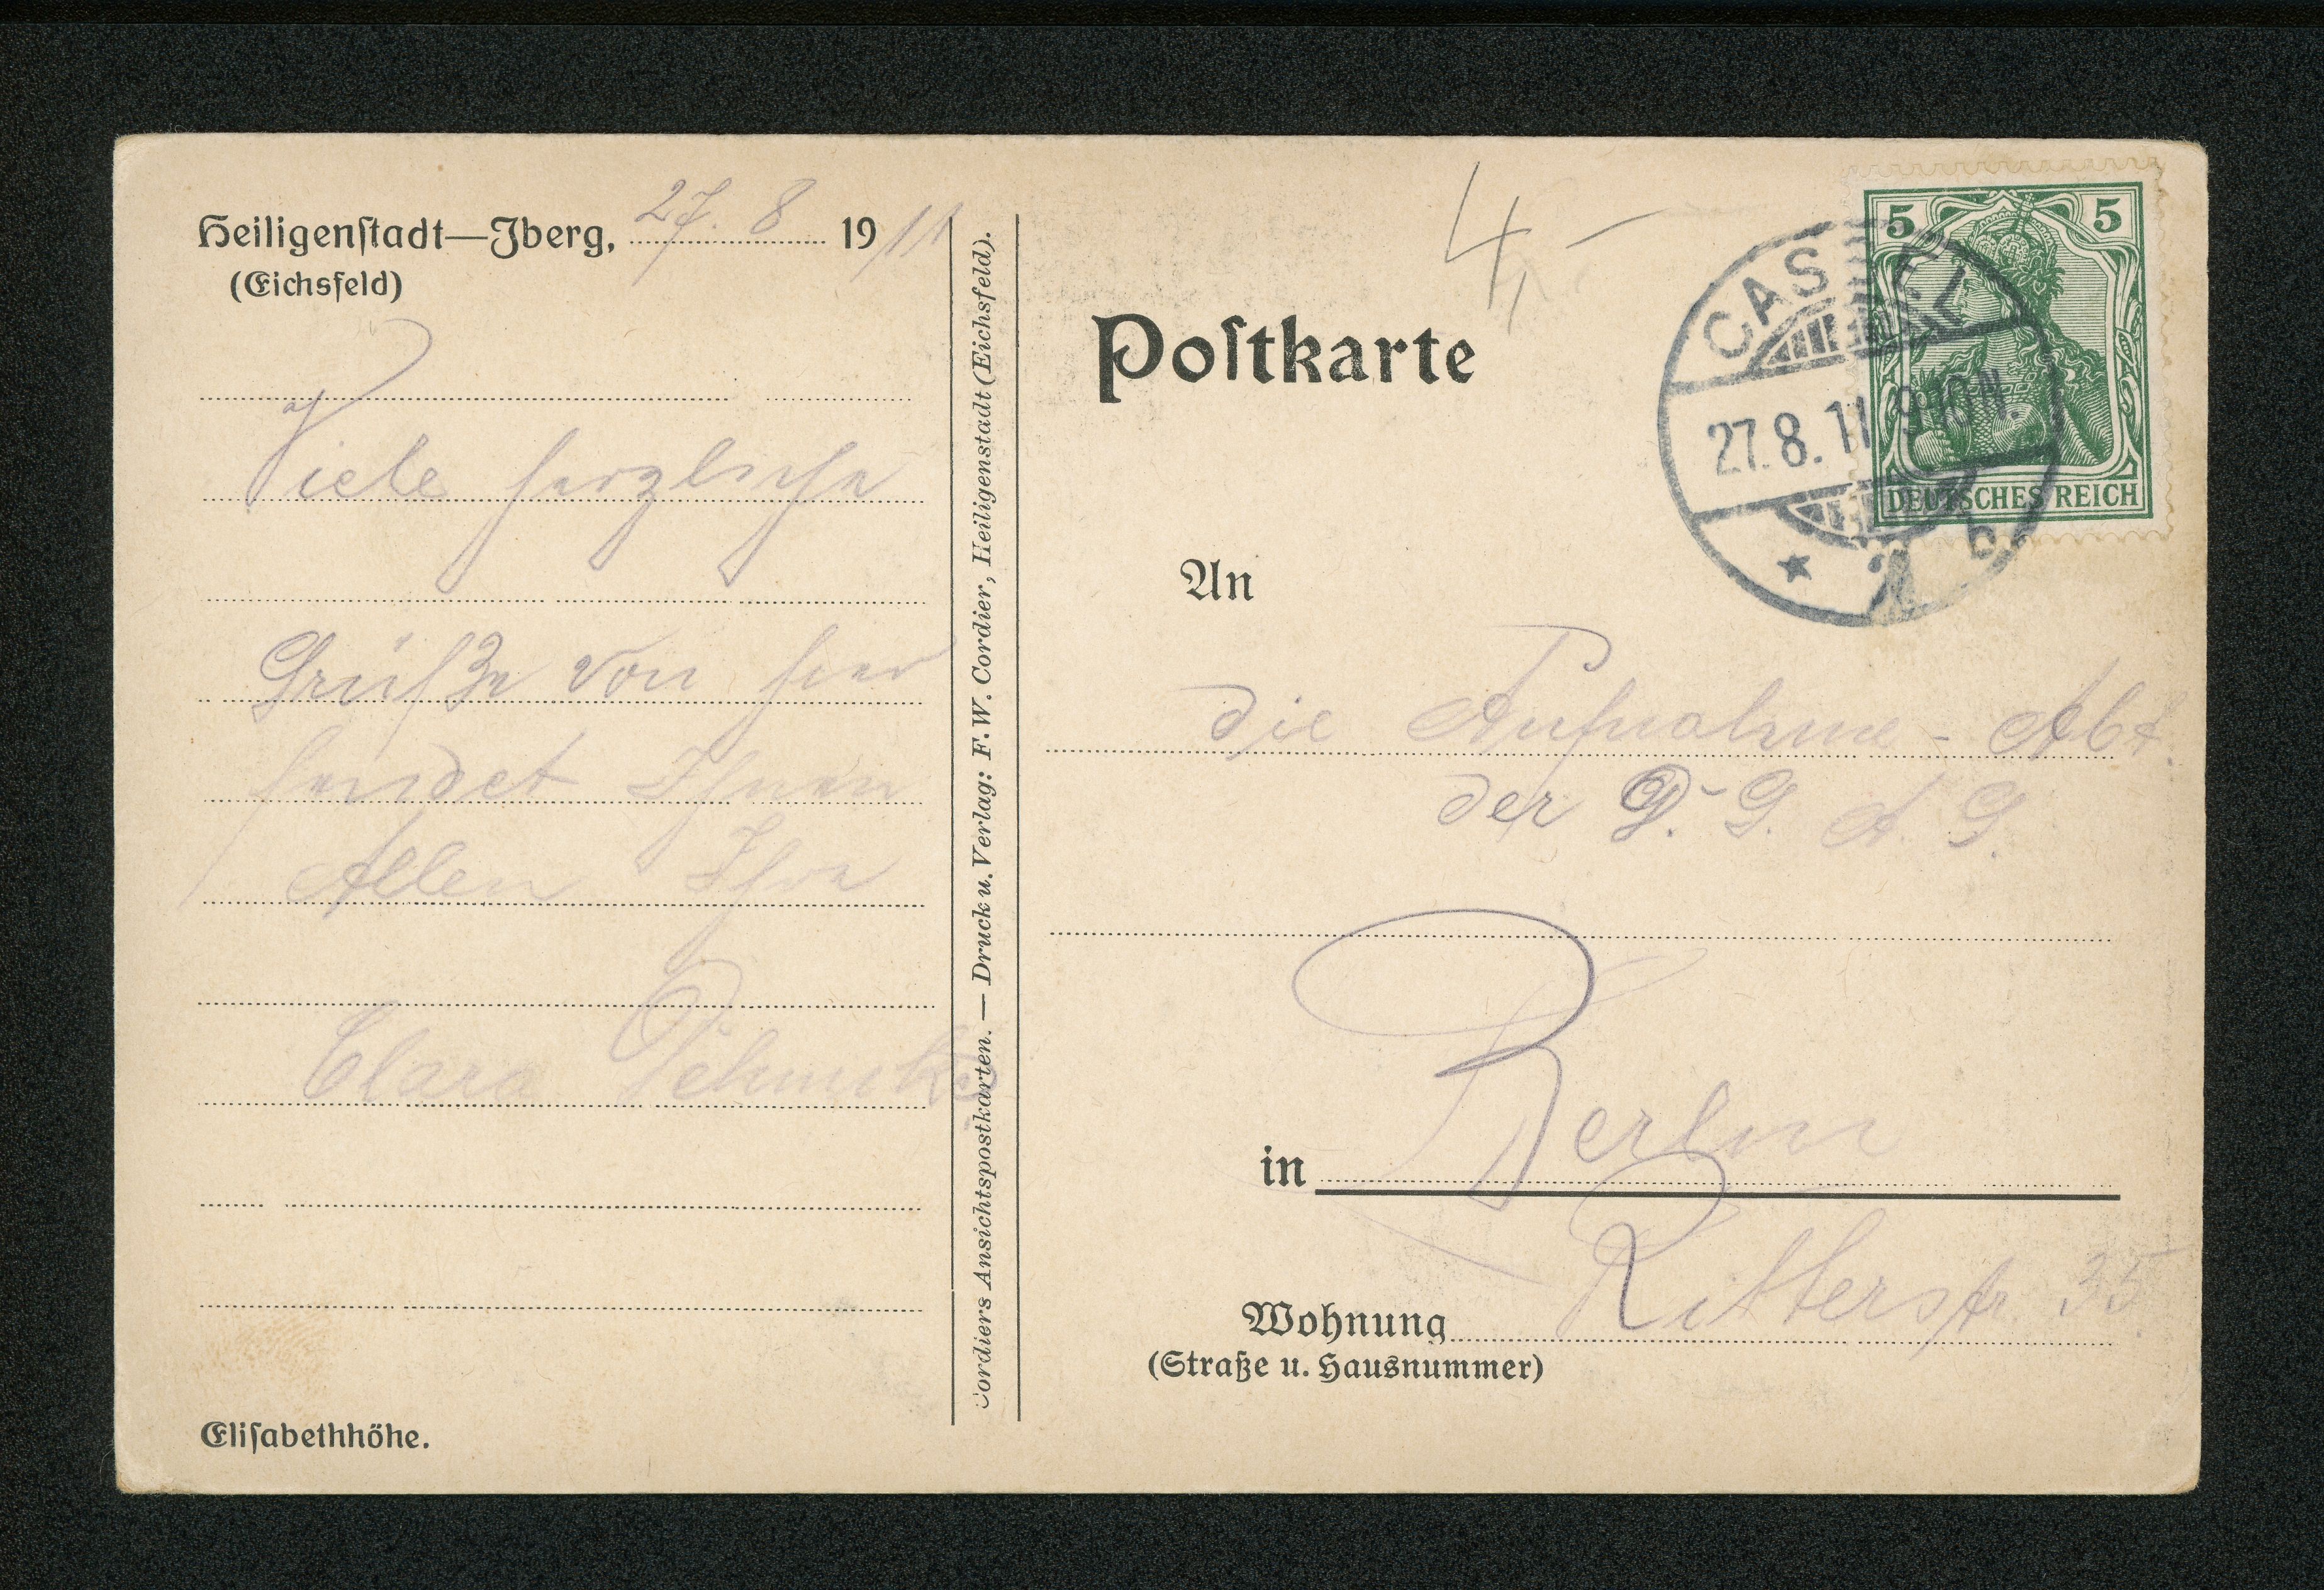 Heiligenſtadt—Iberg, 27. 8 1911
(Eichsfeld)
Viele herzliche
Grüße von hier
sendet Ihnen
Allen Ihre
Clara
Eliſabethhöhe.
Cordiers Ansichtspostkarten. — Druck u. Verlag: F. W. Cordier, Heiligenstadt (Eichsfeld).
4,–
Poſtkarte
5 5
DEUTSCHES REICH
CASSEL
27.8.11 9-10 N.
* 2 b
An
die Aufnahme-Abt.
der D. G. A. G.
in Berlin
Wohnung Ritterstr 35
(Straße u. Hausnummer)